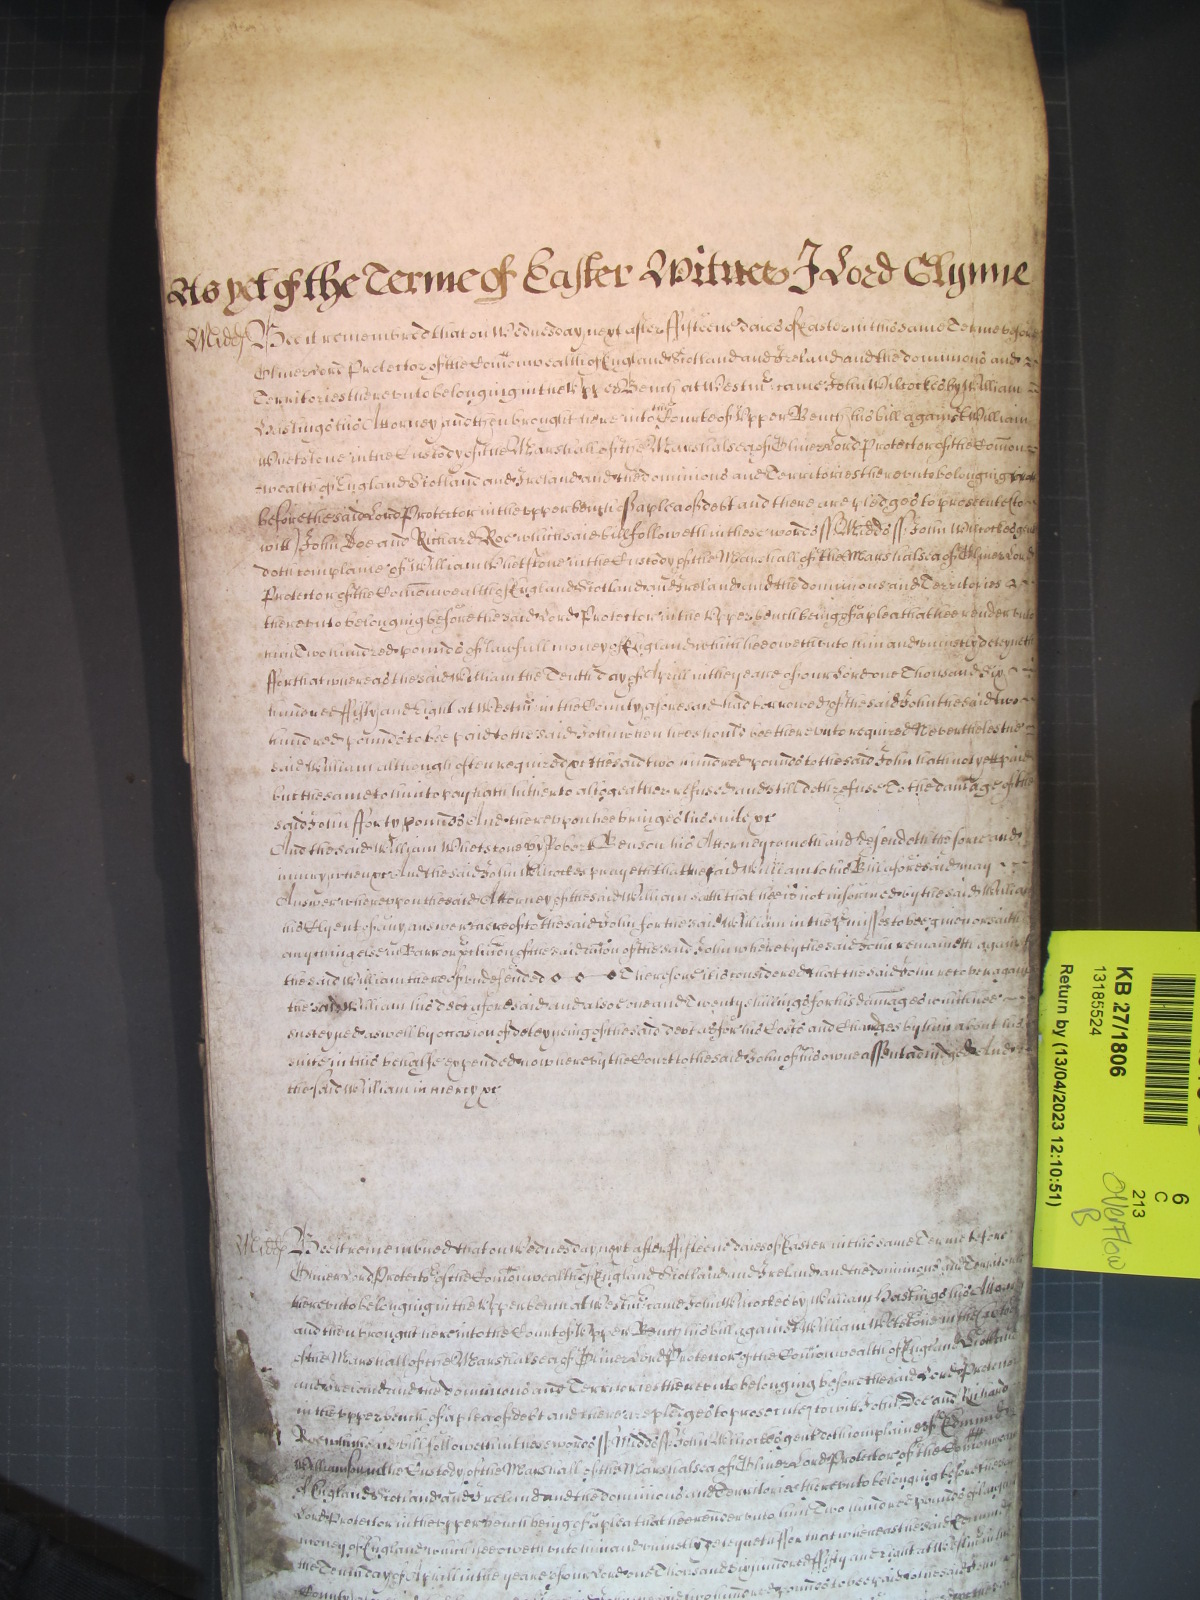 As yet of the Terme of Easter Witnes J Lord Glynne
Midds Bee it remembred that on Wednesday next after fifteene daies of Easter in this same Terme before
Oliver Lord Protector of the Comonwealth of England Scotland and Ireland and the dominions and
Territories therevnto belonging in the Vpper Bench at Westmr came John Wilcockes by William
Hastings his Attorney and then brought here into the Courte of Vpper Bench his bill against William
Whetstone in the Custody of the Marshall of the Marshalsea of Oliver Lord Protector of the Comon
wealth of England Scotland and Ireland and the dominions and Territories therevnto belonging
before the said Lord Protector in the vpper bench of a plea of debt and there are pledges to prosecute (to
witt) John Doe and Richard Roe which said bill followeth in these words ss Midds ss John Wilcockes gent
doth complaine of William Whetstone in the Custody of the Marshall of the Marshalsea of Oliver Lord
Protector of the Comonwealth of England Scotland and Ireland and the dominions and Territories
therevnto belonging before the said Lord Protector in the Vpper bench being of a plea that hee render vnto
him Two hundred pounds of lawfull money of England which hee oweth vnto him and vniustly deteyneth
ffor that whereas the said William the Tenth day of Aprill in the yeare of our Lord one Thousand Six
hundred ffifty and Eight at Westmr in the County aforesaid had borrowed of the said John the said two
hundred pounds to bee paid to the said John when hee should bee therevnto required Neverthelesse the
said William although often required &c the said two hundred pounds to the said John hath not yett paid
but the same to him to pay hath hitherto altogeather refused and still doth refuse To the damage of the
said John fforty pounds And therevpon hee bringeth his suite &c
And the said William Whetstone by Robert Benson his Attorney cometh and defendeth the force and
iniury when &c And the said John Wilcockes prayeth that the said William to his Bill aforesaid may
Answer wherevpon the said Attorney of the said William saith that hee is not informed by the said William
his Clyent of any answer thereof to the said John for the said William in the p'misses to bee given or saith
anything else in Barr or p'clusion of the said action of the said John whereby the said John remaineth against
the said William thereof vndefended Therefore it is considered that the said John recover against
the said William his Debt aforesaid and alsoe one and Twenty shillings for his damages which hee
susteyned aswell by occasion of deteyneing of the said debt as for his Costs and Charges by him about his
suite in this behalfe expended now here by the Court to the said John of his owne assent adiudged And
the said William in mercy &c
Midds Bee it remembred that on Wednesday next after ffifteene daies of Easter in this same Terme before
Oliver Lord Protector of the Comonwealth of England Scotland and Ireland and the dominions and Territories
therevnto belonging in the Vpper bench at Westmr came John Wilcockes by William Hastings his Attorney
and then brought here into the Court of Vpper Bench his bill against William Whetstone in the Custody
of the Marshall of the Marshalsea of Oliver Lord Protector of the Comonwealth of England Scotland
and Ireland and the dominions and Territories therevnto belonging before the said Lord Protector
in the vpper bench of a plea of debt and there are pledges to prosecute (to witt John Doe and Richard
Roe which said bill followeth in these words ss Midds ss John Wilcockes gent doth complaine of Edmund
Williamson in the Custody of the Marshall of the Marshalsea of Oliver Lord Protector of the Comonwealth
of England Scotland and Ireland and the dominions and Territories therevnto belonging before the said
Lord Protector in the vpper bench being of a plea that hee render vnto him Two hundred pounds of lawfull
money of England which hee oweth vnto him and vniustly deteyneth ffor that whereas the said Edmund
the Tenth day of Aprill in the yeare of our Lord one Thousand Six hundred ffifty and eight at Westmr in the
KB 27/1806
13185524
Return by (13/04/2023 12:10:51)
6
C
213
OVERFLOW
B